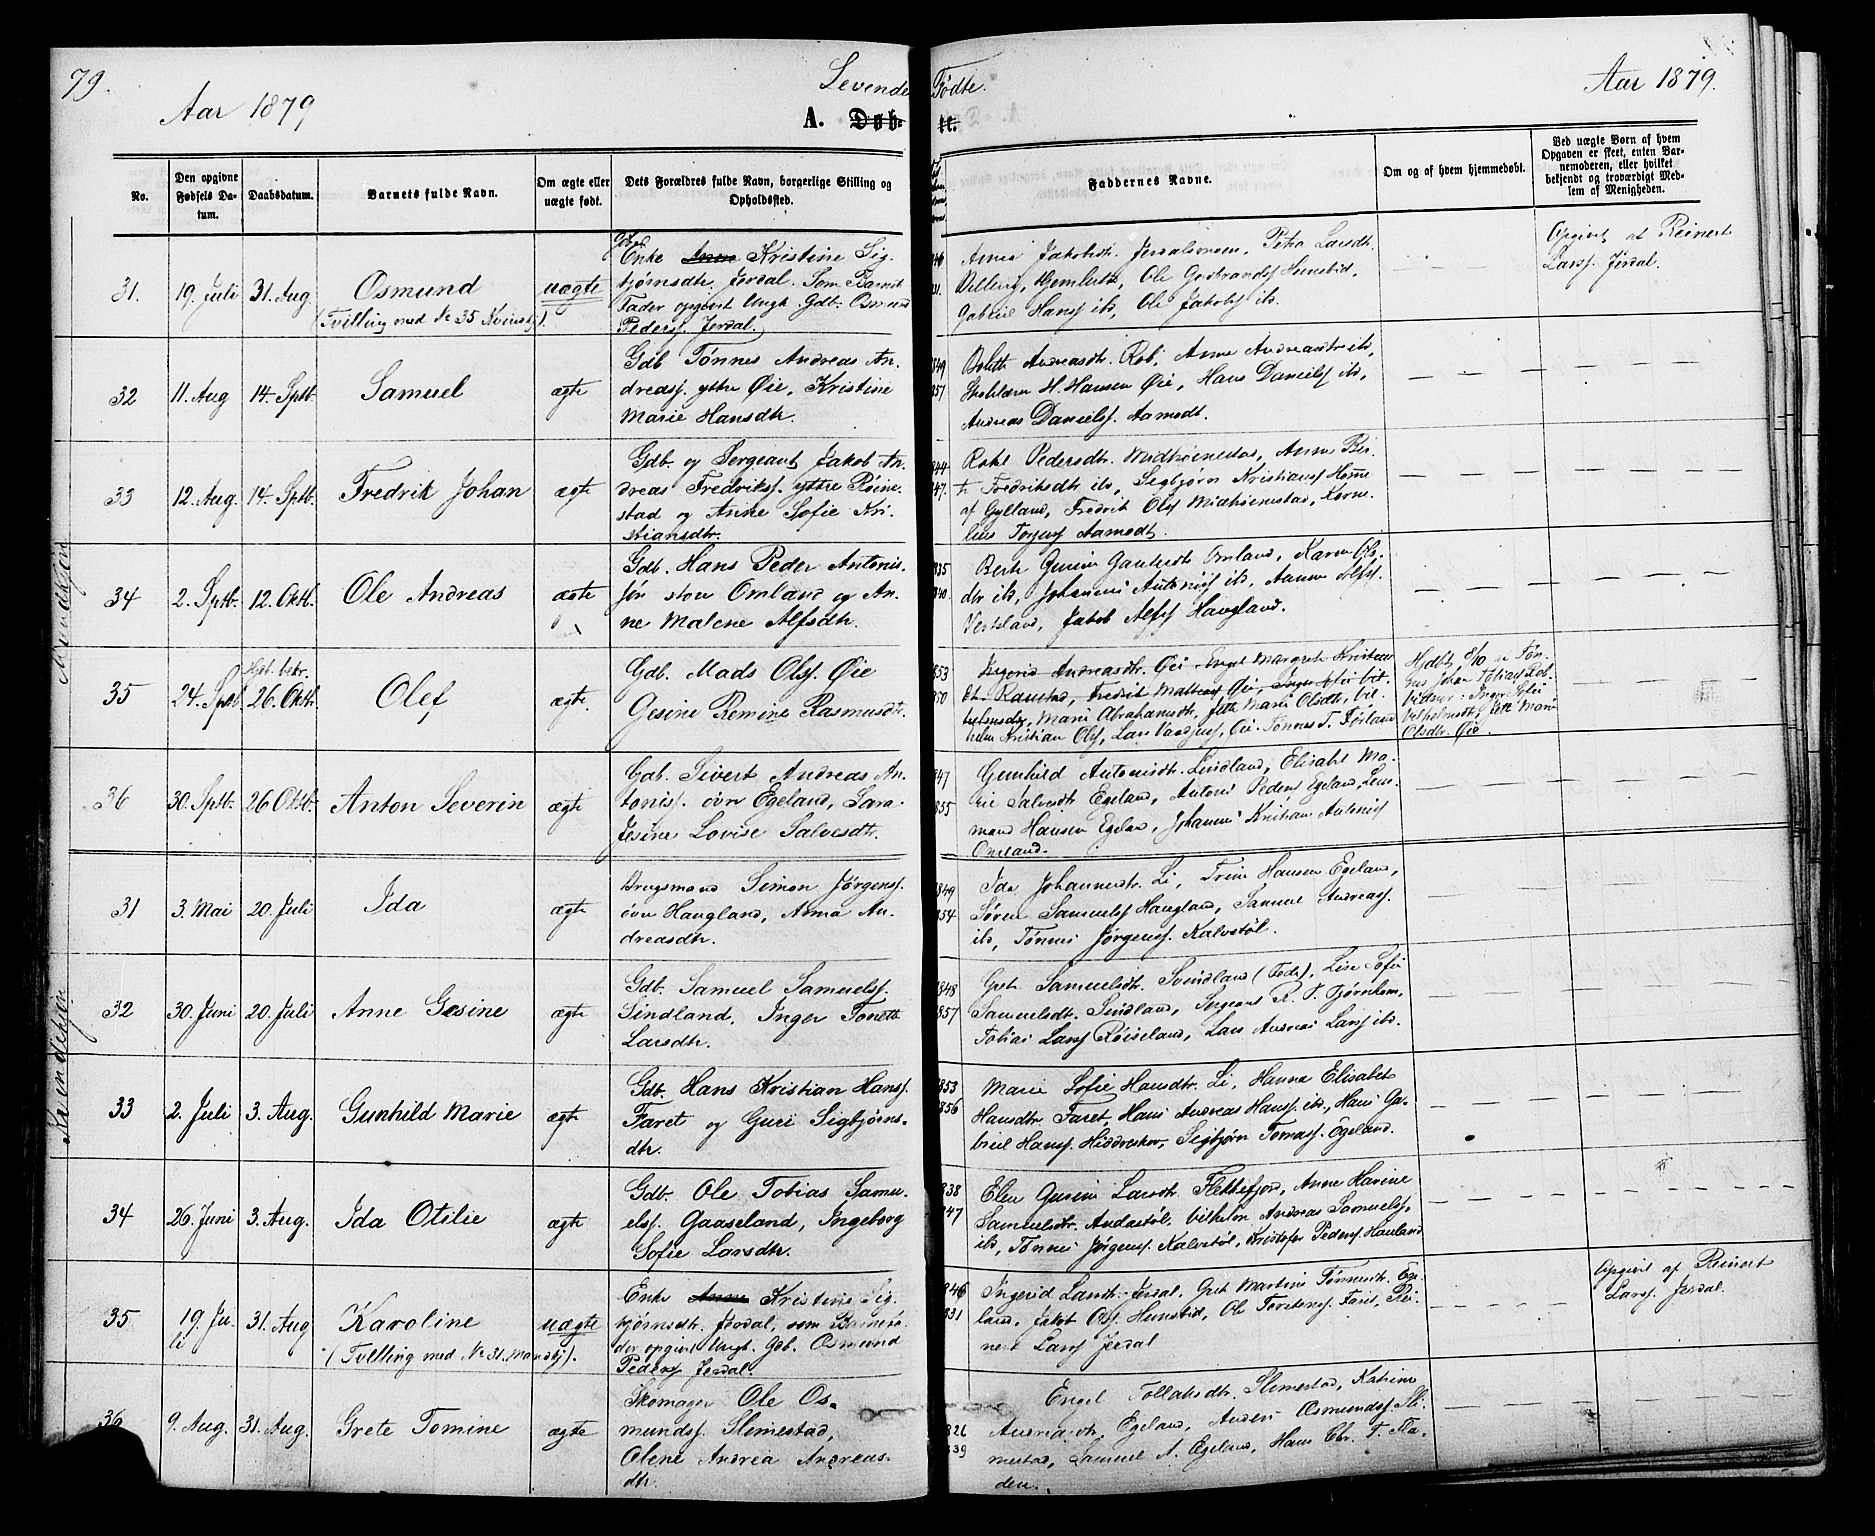 79.
Aar 1879
Levende Fødte.
Aar 1879.
A. Døbte.
No.
Den opgivne Fødsels Datum.
Daabsdatum.
Barnets fulde Navn.
Om ægte eller uægte født.
Dets Forældres fulde Navn, borgerlige Stilling og Opholdssted.
Faddernes Navne.
Om og af hvem hjemmedøbt.
Ved uægte Børn af hvem Opgaven er skeet, enten Barnemoderen, eller hvilket bekjendt og troværdigt Medlem af Menigheden.
Mandkjøn
31. 19. Juli 31. Aug Osmund uægte
(Tvilling med No 35 Kvindkj).
Enke Anne Kristine Sig-
bjørnsdtr. Jerdal. Som Barnets
Fader opgivet Ungk. Gdb. Osmund
Peders. Jerdal.
46
31.
Anna Jakobsdtr. Jerdal, Petra Larsdt.
Ole Gudbrands Hunsbid,
Gabriel Hanss ibd, Ole Jakobs ibd.
Opgivet af Reinert
Larss. Jerdal.
32 11. Aug 14. Sptb. Samuel ægte
Gdb Tønnes Andreas An-
dreass. yttre Øie, Kristine
Marie Hansdtr.
1849
57
Andreasdtr. Rob, Anne Andreasdtr ibd,
H. Hansen Øie, Hans Daniels ibd,
Andreas Daniels. Aamodt.
33 12. Aug. 14. Sptb. Fredrik Johan ægte
Gdb. og Sergeant Jakob An-
dreas Fredrikss. yttre Røine-
stad og Anne Sofie Kri-
stiansdtr.
1844
47.
Rakel Pedersdtr. Midthoinestad, Anne Ber-
te Fredriksdtr ibd, Sigbjørn Kristians Homme
af Gylland, Fredrik Ols Midthoinestad, Korne-
lius Torjus Aamodt.
34 2. Sptb. 12. Oktb. Ole Andreas ægte
Gdb. Hans Peder Antonis-
søn store Omland og An-
ne Malene Alfsdtr.
1835
1840.
Berte Gurine Omland, Karen Ols-
dtr ibd, Johannes Antonis ibd, Alfs.
Jakob Alfs Haugland.
35 24. Sptb. Hgt. bekr. 26. Oktb. Olef ægte.
Gdb. Mads Ols. Øie
Gesine Remine Rasmusdtr.
1853
1850
Ingerid Andreasdtr. Øie, Engel Margrete
Ramstad, Fredrik Mathias Øie,
Marie Abrahamsdtr, Jette Marie Olsdtr, Vil-
helm Kristian Ols, Lars Øie. Tønnes T. Førland
Hjdbt. 8/10 af Tøn-
nes Johan Tobias Rob.
Vidner: Inger
Vilhelmsdtr, Jette Marie
Olsdtr. Øie.
36 30. Sptb. 26 Oktb. Anton Severin ægte
Gdb. Sivert Andreas An-
tonis. øvre Egeland, Sara
Jesine Lovise Salvesdtr.
1847
1855
Gunhild Antonisdt. Lindland, Elisabet Ma-
rie Salvesdtr Egeland, Antoni Peders Egeland, Lein-
mand Hansen Egeland, Johannes Kristian Antonis
Omland.
Kvindekjøn
31 3. Mai 20. Juli Ida ægte
Brugsmand Simon Jørgens.
øvre Haugland, Anna An-
dreasdtr.
1849
1854.
Ida Johannesdtr. Li, Trine Hansen Egeland,
Søren Samuels Haugland, Samuel Andreass.
ibd, Tønnes Jørgenss. Kalvstøl.
32 30. Juni 20. Juli Anne Gesine ægte
Gdb. Samuel Samuelss.
Sindland, Inger Tonette
Larsdtr.
1848
1857
Gret Samuelsdtr. Svindland (Feda), Lise Sofie
Samuelsdt. Sindland, R. T. Tjørnhom,
Tobias Larss Røiseland, Lars Andreas Larss ibd.
33 2. Juli 3. Aug. Gunhild Marie ægte
Gdb. Hans Kristian Hanss.
Faret og Guri Sigbjørns-
dtr.
1853
1856
Marie Sofie Hansdtr. Li, Hanna Elisabet
Hansdtr Faret, Hans Andreas Hanss. ibd., Hans Ga-
briel Hanss. Hiddreskov, Sigbjørn Tomass. Egeland.
34 26. Juni 3. Aug. Ida Otilie ægte
Gdb. Ole Tobias Samu-
elss. Gaaseland, Ingeborg
Sofie Larsdtr.
1838
47
Elen Gurine Larsdtr Flekkefjord, Anne Harine
Samuelsdtr. Andastøl, Vilhelm Andreas Samuelss,
ibd, Tønnes Jørgenss. Kalvstøl, Kristofer Pederss. Haaland
35 19. Ju-
li 31. Aug Karoline uægte
(Tvilling med No 31. Mandkj).
Enke Anne Kristine Sig-
bjørnsdtr. Jerdal, som Barnefa-
der opgivet Ungk. Gdb. Osmund
Pederss Jerdal.
1846
1831
Ingerid Larsdt. Jerdal, Gret Martine Tønnesdt. Ege-
land, Jakob Olss. Hunsbid, Ole Torstenss. Faret, Rei-
nert Larss Jerdal
Opgivet af Reinert
Larss. Jerdal.
36 9. Aug. 31. Aug. Grete Tomine ægte
Skomager Ole Os-
mundss. Slimestad,
Olene Andrea Andreas-
dtr.
1826
1839
Engel Tollaksdtr. Slimestad, Katrine
Andreasdtr. Egeland, Anders Osmundss. Sli-
mestad, Samuel A. Egeland, Hans Chr. T. Sta-
den.